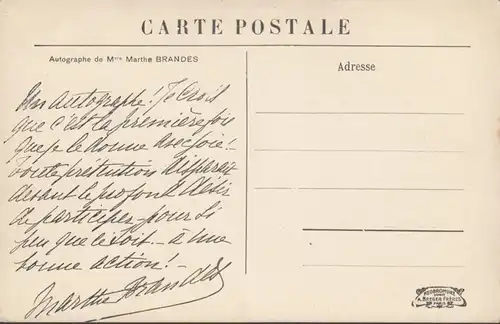 CARTE POSTALE
Autographe de Mme Marthe BRANDES
Un autographe! Je crois
que c'est la première fois
que je le donne avec joie!
Toute prétention disparaît
devant le profond désir
de participer pour si
peu que ce soit - à une
bonne action! -
Marthe Brandès
Adresse
A. BERGER FRÈRES
PARIS